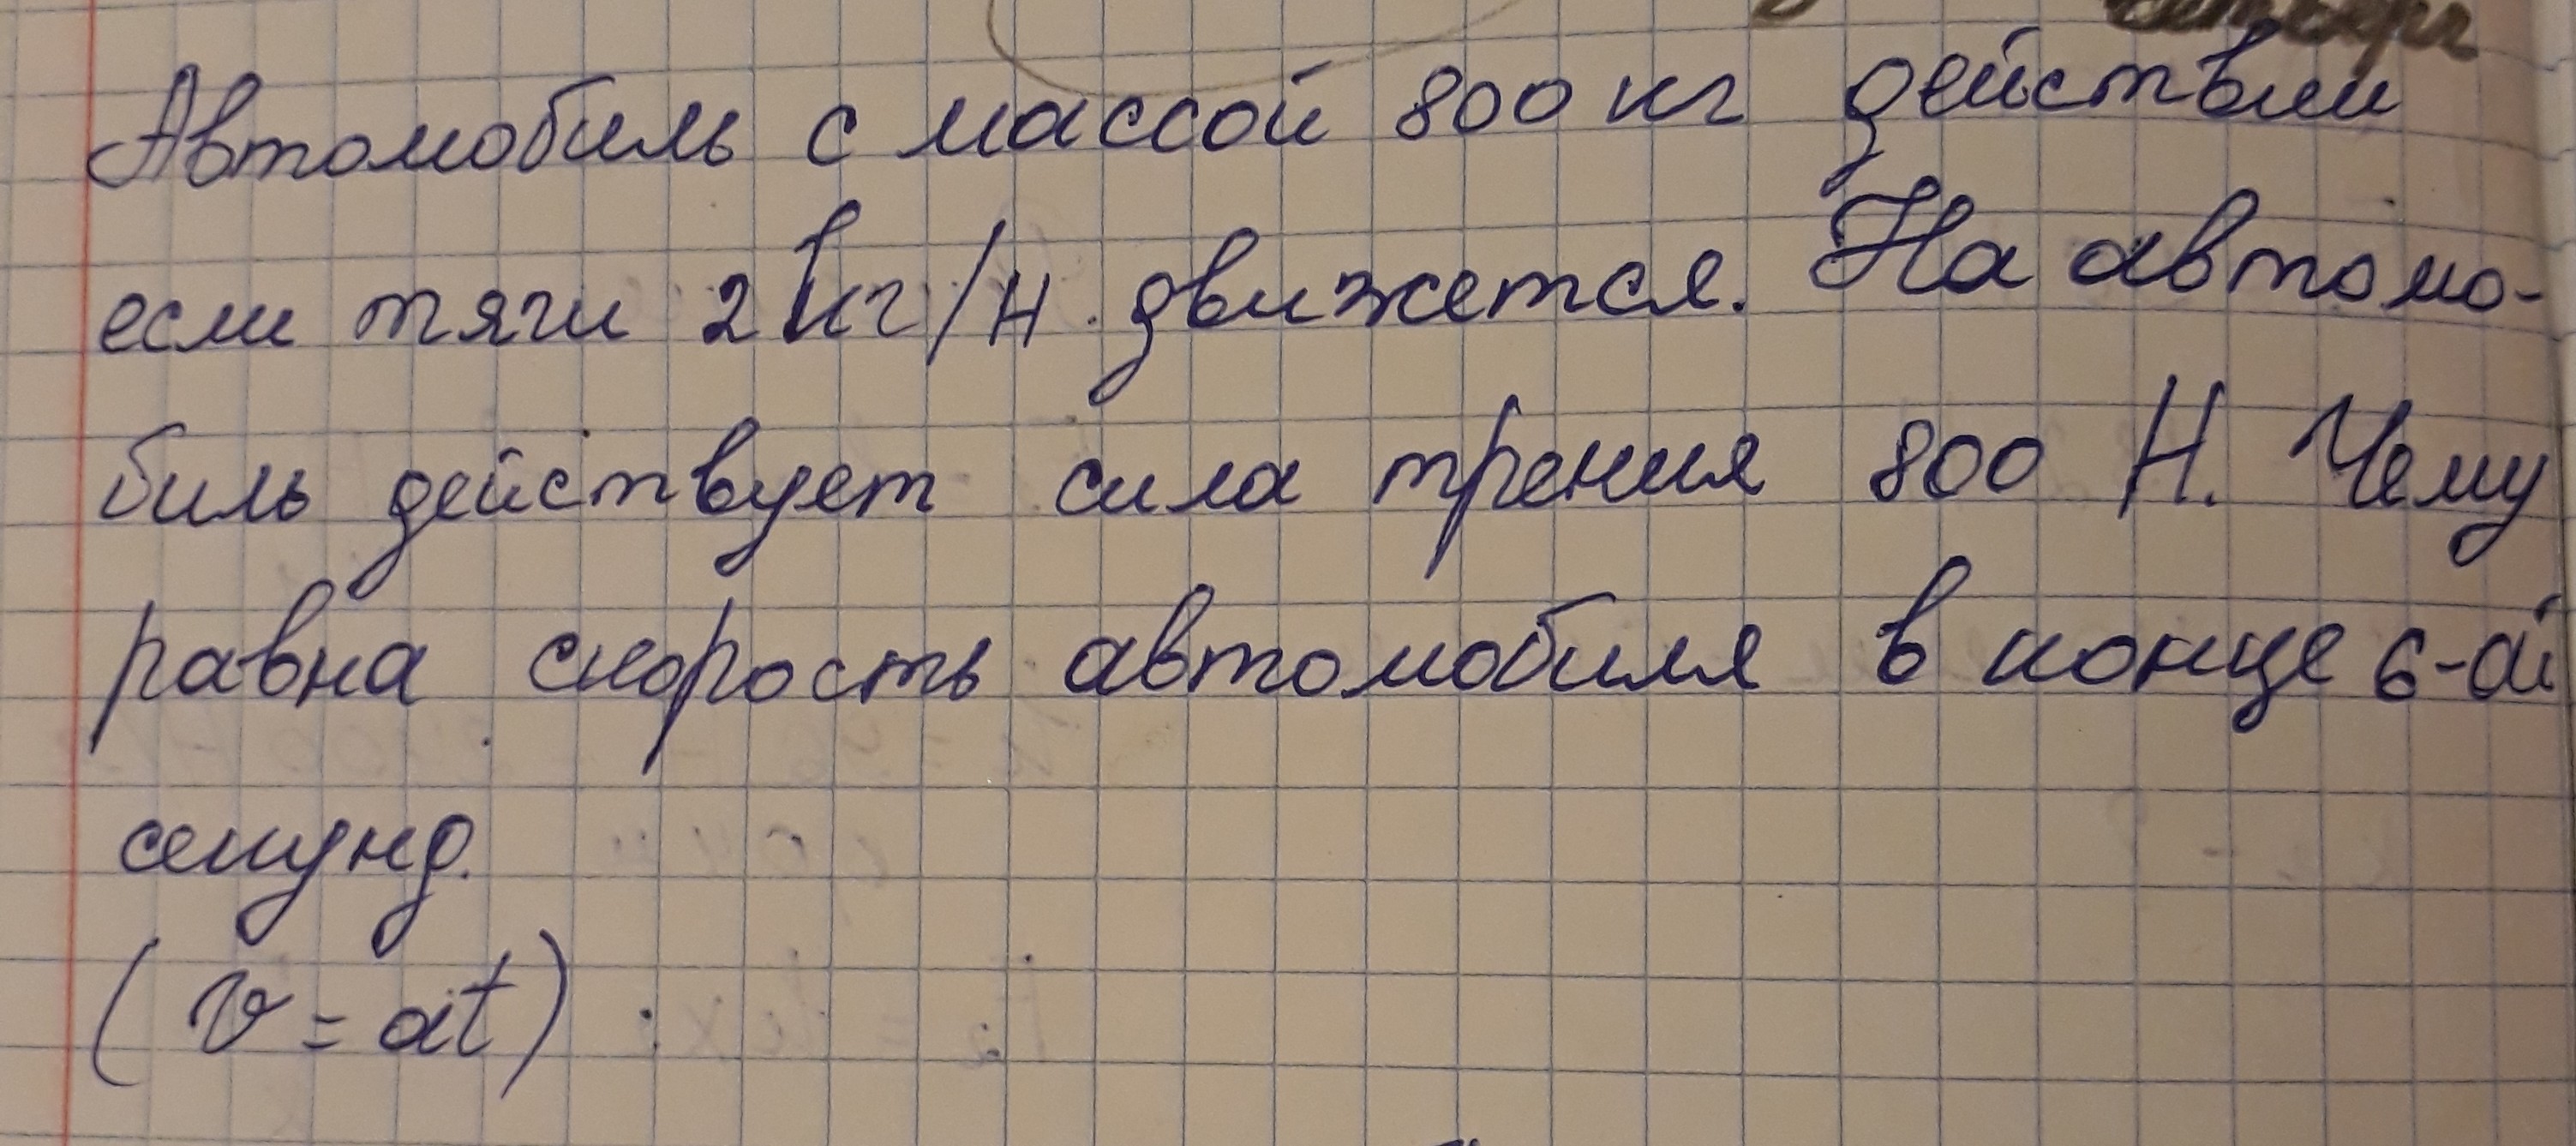 Автомобиль с массой 800 кг действии
если тяги 2 кг/н движется. На автомо-
биль действует сила трения 800 Н. Чему
равна скорость автомобиля в конце 6-ой
секунд.
(v = at)